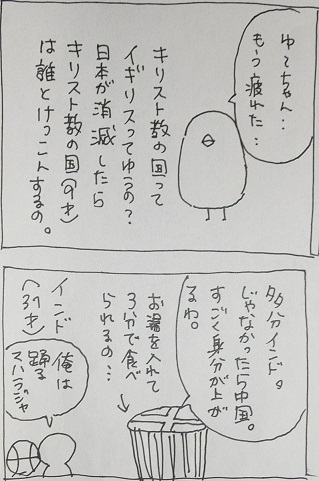 ゆでちゃん…
もう疲れた…
キリスト教の国って
イギリスってゆうの？
日本が消滅したら
キリスト教の国(9才)
は誰とけっこんするの。
多分インド。
じゃなかったら中国。
すごく身分が上が
るわ。
お湯を入れて
3分で食べ
られるの…
インド
(37才)
俺は
踊る
スハラジャ